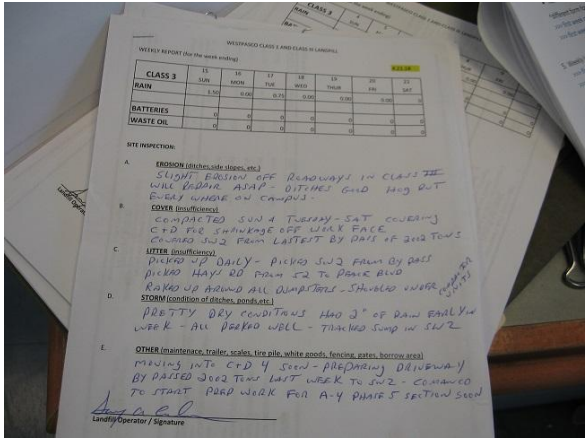 WESTPASCO CLASS 1 AND CLASS III LANDFILL
WEEKLY REPORT (for the week ending)
CLASS 3 15 16 17 18 19 20 21
SUN MON TUE WED THUR FRI SAT
RAIN 1.50 0.00 0.75 0.00 0.00 0.00 0
BATTERIES
WASTE OIL
SITE INSPECTION:
A. EROSION (ditches,side slopes, etc.)
SLIGHT EROSION OFF ROADWAYS IN CLASS III
WILL REPAIR ASAP - DITCHES GOOD OUT
EVERY WHERE ON CAMPUS.
B. COVER (insufficiency)
COMPACTED SUN & TUESDAY - SAT COVERING
C+D FOR SHRINKAGE OFF WORK FACE
COVERED SW2 FROM LASTEST BY PASS OF 2002 TONS
C. LITTER (insufficiency)
PICKED UP DAILY - PICKED SW2 FROM BY PASS
PICKED HAYS RD FROM 52 TO PEACE BLVD
RAKED UP AROUND ALL DUMPSTERS - SHOVELED UNDER COMPACTER UNITS
D. STORM (condition of ditches, ponds,etc.)
PRETTY DRY CONDITIONS HAD 2" OF RAIN EARLY IN
WEEK - ALL PERKED WELL - TRACKED SUMP IN SW2
E. OTHER (maintenace, trailer, scales, tire pile, white goods, fencing, gates, borrow area)
MOVING INTO C+D 4 SOON - PREPARING DRIVEWAY
BY PASSED 2002 TONS LAST WEEK TO SW2 - COMANCO
TO START PREP WORK FOR A-4 PHASE 5 SECTION SOON
Landfill Operator / Signature
CLASS 3
RAIN